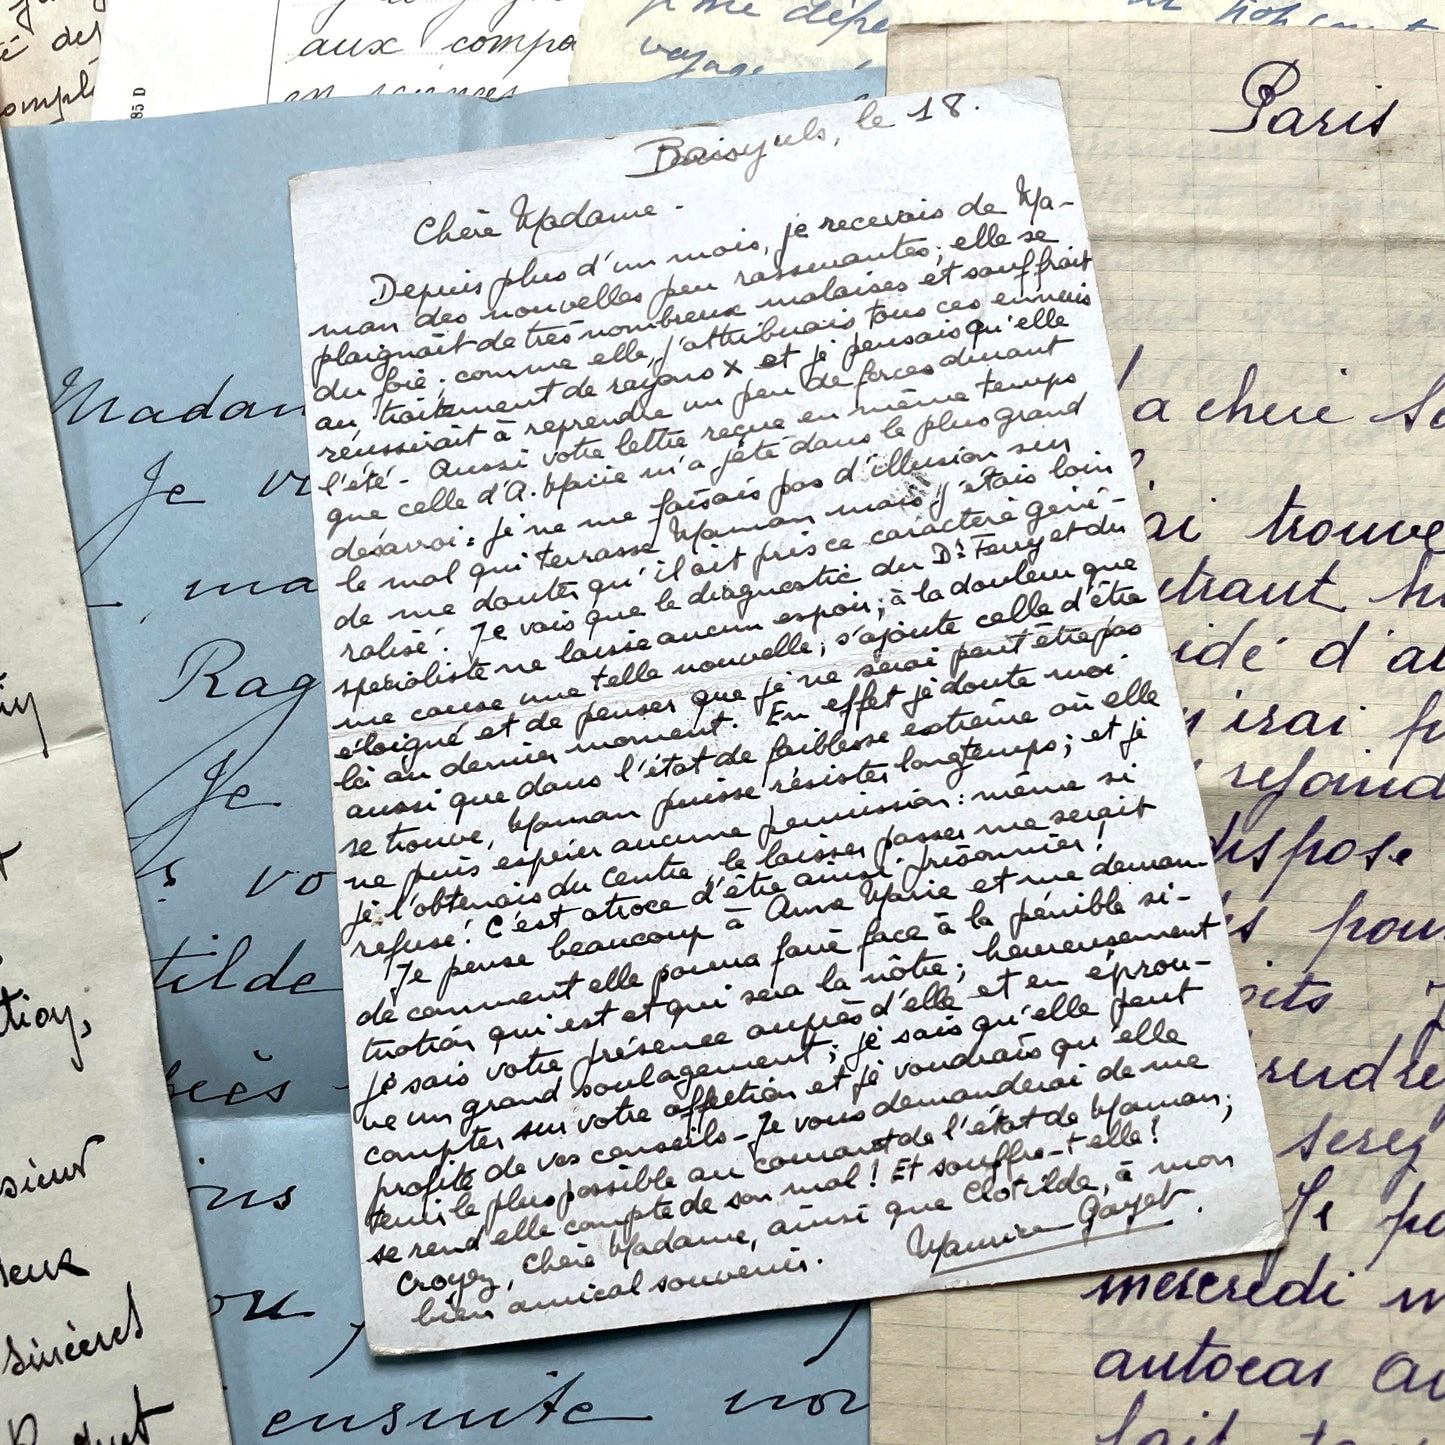 aux compa
en sciences
me dépe
voyage
é des
compl
85 D
Paris
Baisyuls, le 18.
Chère Madame.
Depuis plus d'un mois, je recevais de Ma-
man des nouvelles peu rassurantes; elle se
plaignait de très nombreux malaises et souffrait
du foie; comme elle, j'attribuais tous ces ennuis
au traitement de rayons X et je pensais qu'elle
réussirait à reprendre un peu de forces durant
l'été - Aussi votre lettre reçue en même temps
que celle d'A. Marie m'a jeté dans le plus grand
désarroi: je ne me faisais pas d'illusion sur
le mal qui terrasse Maman mais j'étais loin
de me douter qu'il ait pris ce caractère géné-
ralisé. Je vois que le diagnostic du Dr Ferry et du
spécialiste ne laisse aucun espoir; à la douleur que
me cause une telle nouvelle, s'ajoute celle d'être
éloigné et de penser que je ne serai peut être pas
là au dernier moment. En effet je doute moi
aussi que dans l'état de faiblesse extrême où elle
se trouve, Maman puisse résister longtemps; et je
ne puis espérer aucune permission: même si
je l'obtenais du Centre, le laisser passer me serait
refusé! C'est atroce d'être ainsi prisonnier!
Je pense beaucoup à Anne Marie et me deman-
de comment elle pourra faire face à la pénible si-
tuation qui est et qui sera la nôtre; heureusement
je sais votre présence auprès d'elle et en éprou-
ve un grand soulagement; je sais qu'elle peut
compter sur votre affection et je voudrais qu'elle
profite de vos conseils - Je vous demanderai de me
tenir le plus possible au courant de l'état de Maman;
se rend elle compte de son mal! Et souffre-t-elle!
Croyez, Chère Madame, ainsi que Clotilde, à mon
bien amical souvenir.
Maurice Gayet.
Madam
Je vo
ma
Rag
Je
vo
tilde
ou
ensuite nou
tion,
sieur
sincères
a chère
ai trouve
idé d'a
y irai
rejoind
dispose
pour
serez
Je
mercredi m
autocar au
fait